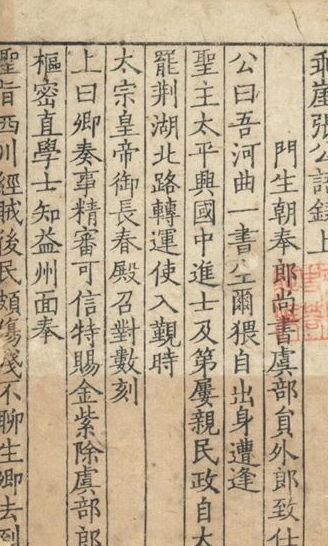 乖崖張公語錄上
門生朝奉郎尚書虞部貟外郎致仕
公曰吾河曲一書生爾猥自出身遭逢
聖主太平興國中進士及第屢親民政自太
罷荆湖北路轉運使入覲時
太宗皇帝御長春殿召對數刻
上曰卿奏事精審可信特賜金紫除虞部郎
樞密直學士知益州面奉
聖旨西川經賊後民頗傷殘不聊生卿去到